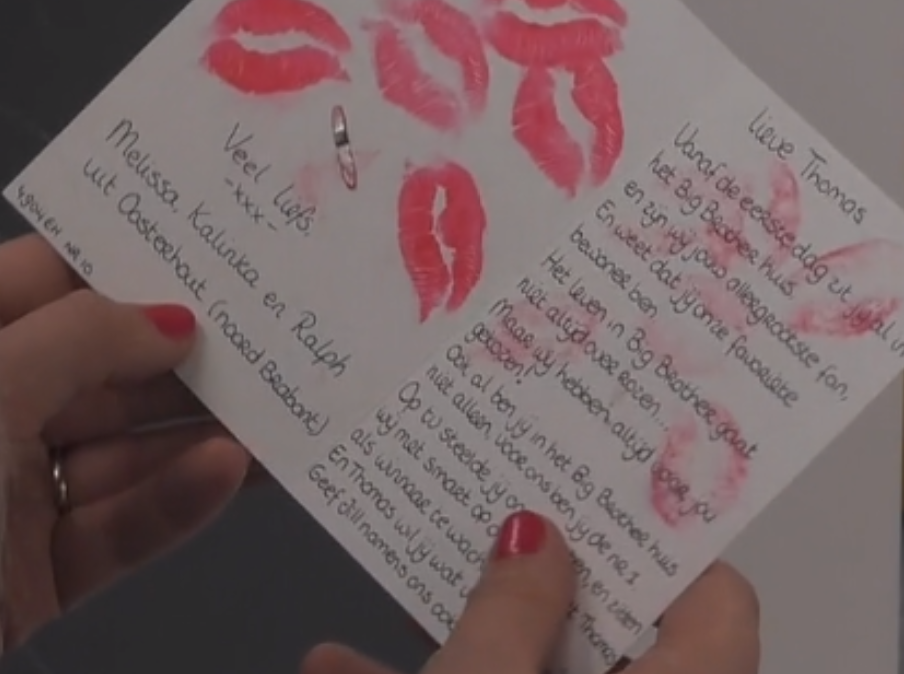 lieve Thomas
Vanaf de eerste dag zit jij al in
het Big Brother huis.
en zijn wij jouw allergrootste fan,
En weet dat jij onze favoriete
bewoner ben
Het leven in Big Brother gaat
niet altijd over rozen...
Maar wij hebben altijd voor jou
gekozen!
Ook al ben jij in het Big Brother huis
niet alleen, voor ons ben jij de nr 1
Op tv steelde jij en zitten
wij met smart op
als winnaar te Thomas
En Thomas wil jij wat
Geef dill namens ons ook
Veel liefs,
-xxx-
Melissa, Kalinka en Ralph
uit Oosterhout (noord Brabant)
4904EH NR.10